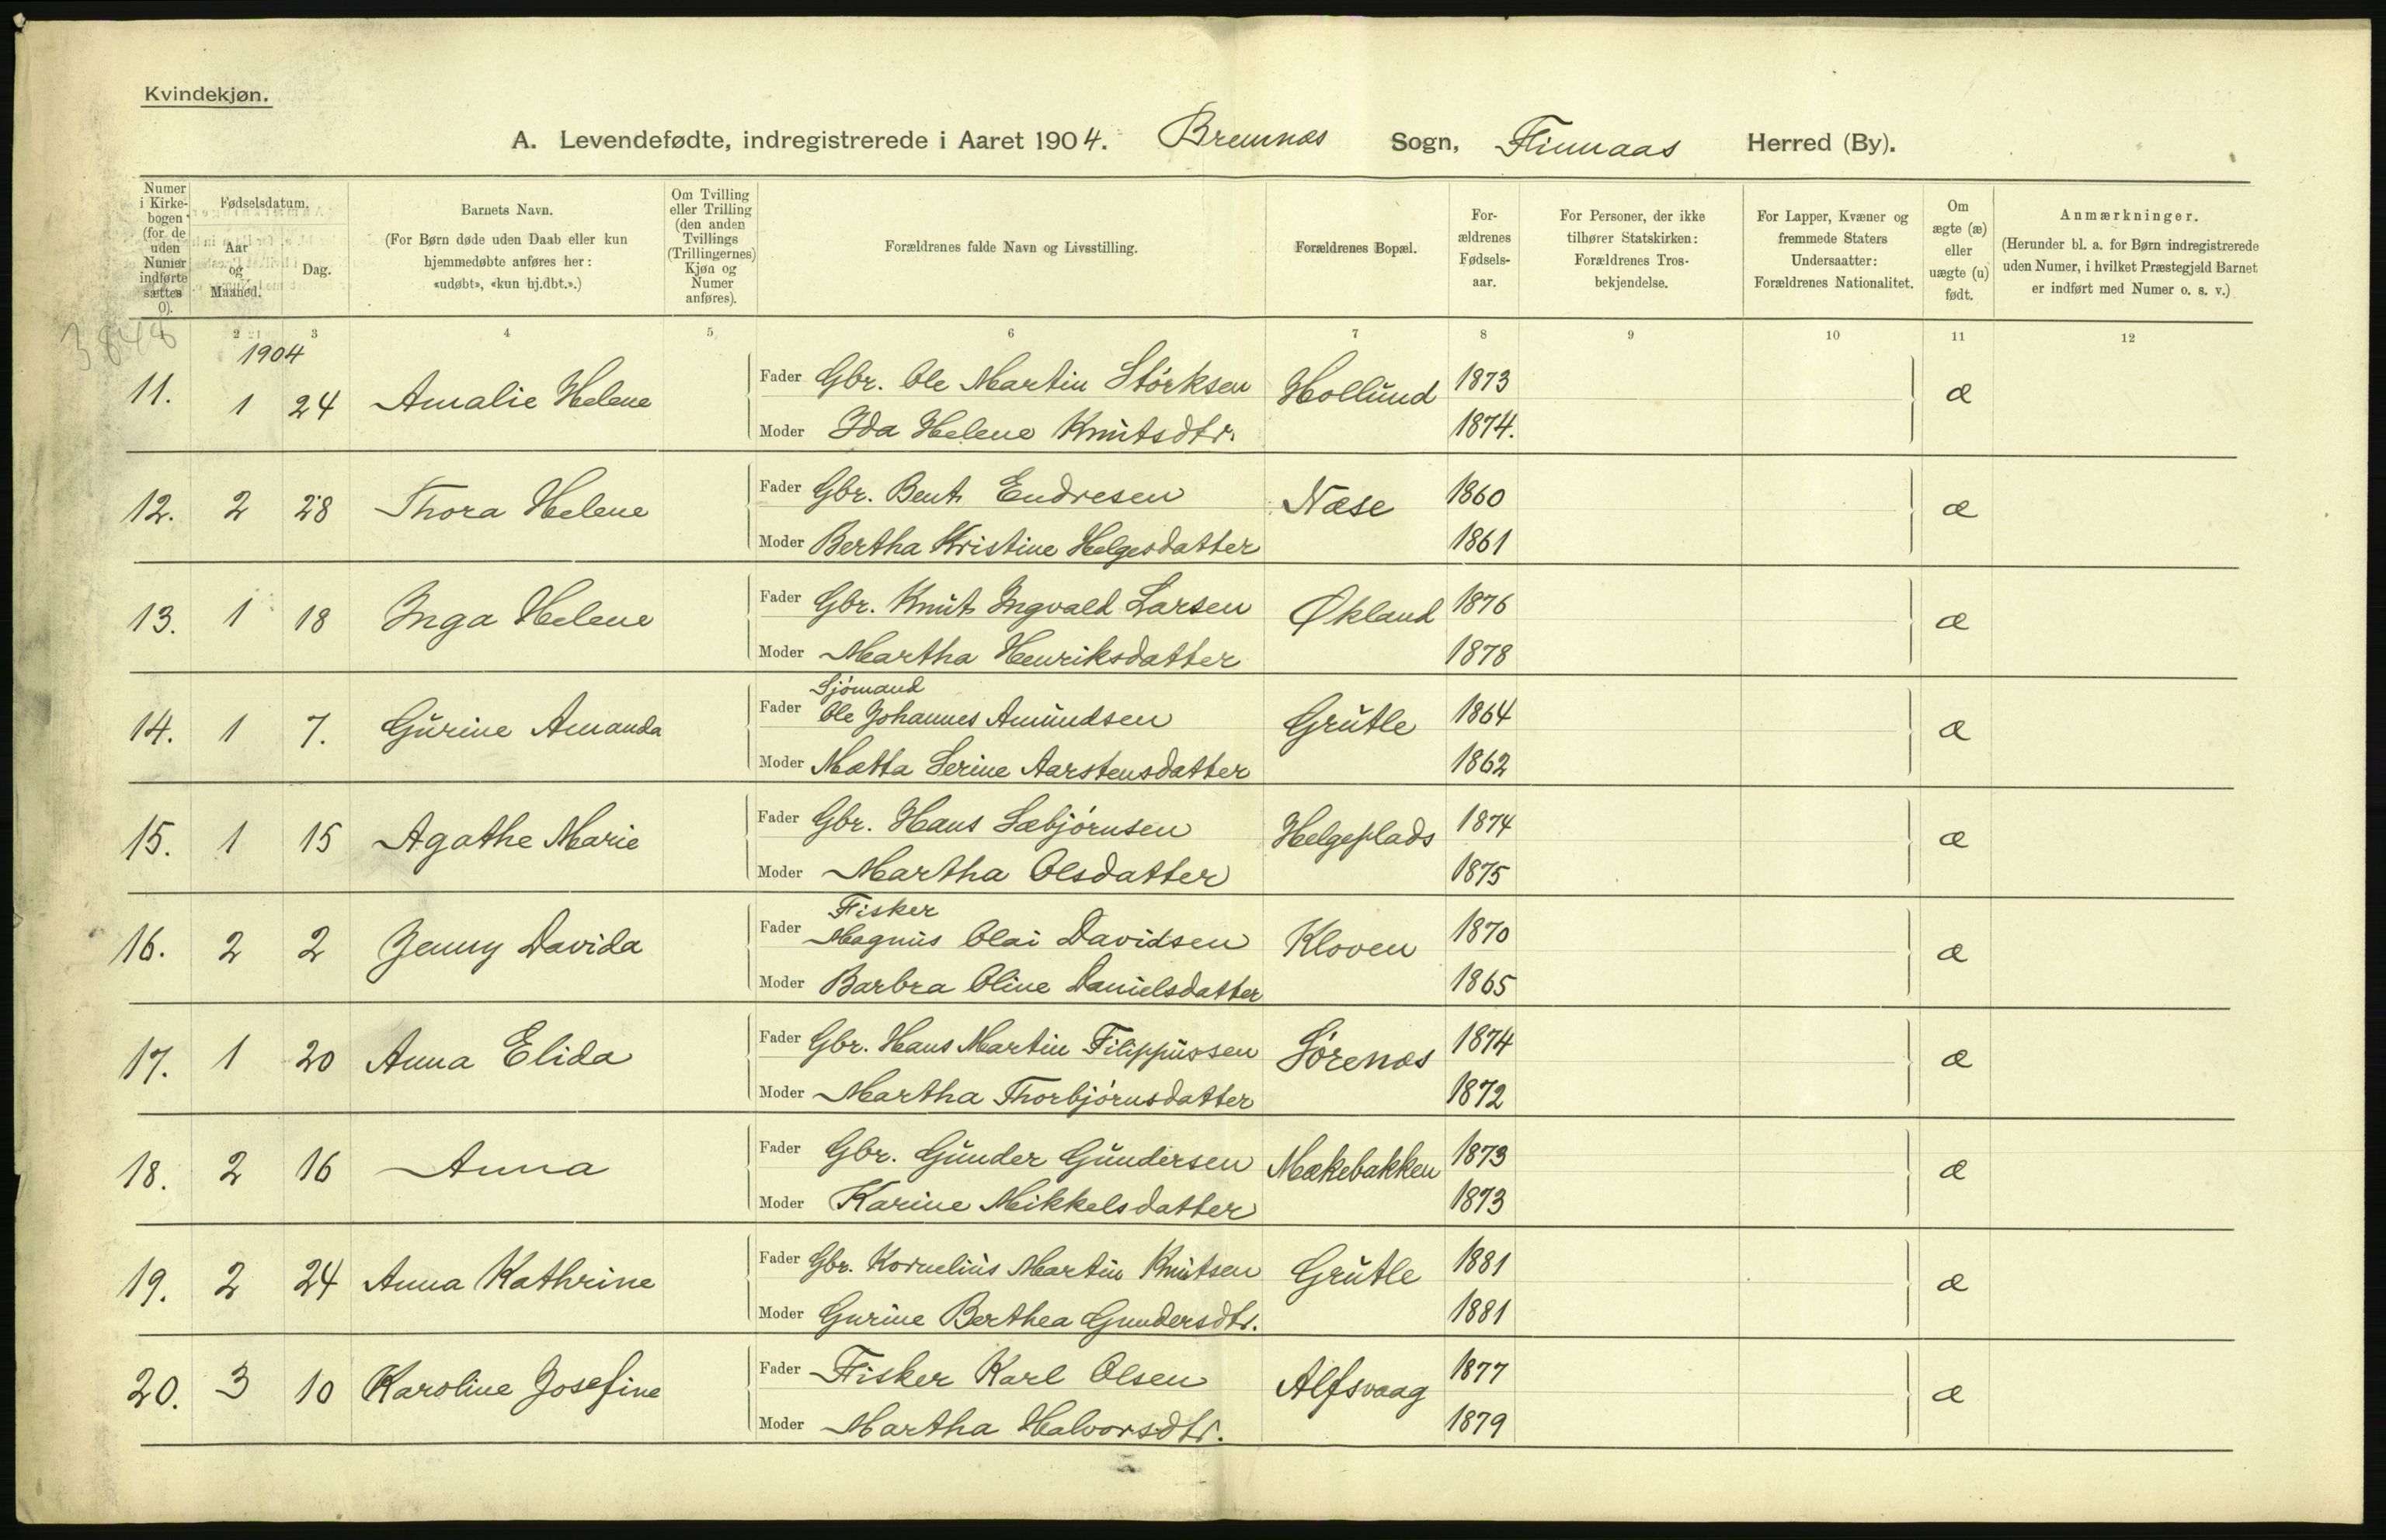 Kvindekjøn.
A. Levendefødte, indregistrerede i Aaret 1904. Bremnæs Sogn, Finnaas Herred (By).
Numer i Kirkebogen (for de uden Numer indførte sættes 0).
Fødselsdatum.
Aar og Maaned.
Dag.
Barnets Navn.
(For Børn døde uden Daab eller kun hjemmedøbte anføres her: «udøbt», «kun hj.dbt.».)
Om Tvilling eller Trilling (den anden Tvillings (Trillingernes) Kjøn og Numer anføres).
Forældrenes fulde Navn og Livsstilling.
Forældrenes Bopæl.
For-ældrenes Fødsels-aar.
For Personer, der ikke tilhører Statskirken: Forældrenes Tros-bekjendelse.
For Lapper, Kvæner og fremmede Staters Undersaatter: Forældrenes Nationalitet.
Om ægte (æ) eller uægte (u) født.
Anmærkninger.
(Herunder bl. a. for Børn indregistrerede uden Numer, i hvilket Præstegjeld Barnet er indført med Numer o. s. v.)
3848
2 3 4 5 6 7 8 9 10 11 12
1904
11. 1 24 Amalie Helene Fader Gbr. Ole Martin Störksen Hollund 1873 æ
Moder Ida Helene Knutsdtr. 1874.
12. 2 28 Thora Helene Fader Gbr. Bent Endresen Næse 1860 æ
Moder Bertha Kristine Helgesdatter 1861
13. 1 18 Inga Helene Fader Gbr. Knut Ingvald Larsen Økland 1876 æ
Moder Martha Henriksdatter 1878
Sjömand
14. 1 7. Gurine Amanda Fader Ole Johannes Amundsen Grutle 1864 æ
Moder Mætta Serine Aarstensdatter 1862
15. 1 15 Agathe Marie Fader Gbr. Hans Sæbjörnsen Helgeplads 1874 æ
Moder Martha Olsdatter 1875
Fisker
16. 2 2 Jenny Davida Fader Magnus Olai Davidsen Kloven 1870 æ
Moder Barbra Oline Danielsdatter 1865
17. 1 20 Anna Elida Fader Gbr. Hans Martin Filippussen Sörenæs 1874 æ
Moder Martha Thorbjörnsdatter 1872
18. 2 16 Anna Fader Gbr. Gunder Gundersen Mækebakken 1873 æ
Moder Karine Mikkelsdatter 1873
19. 2 24 Anna Kathrine Fader Gbr. Kornelius Martin Knutsen Grutle 1881 æ
Moder Gurine Berthea Gundersdtr. 1881
20. 3 10 Karoline Josefine Fader Fisker Karl Olsen Alfsvaag 1877 æ
Moder Martha Halvorsdtr. 1879